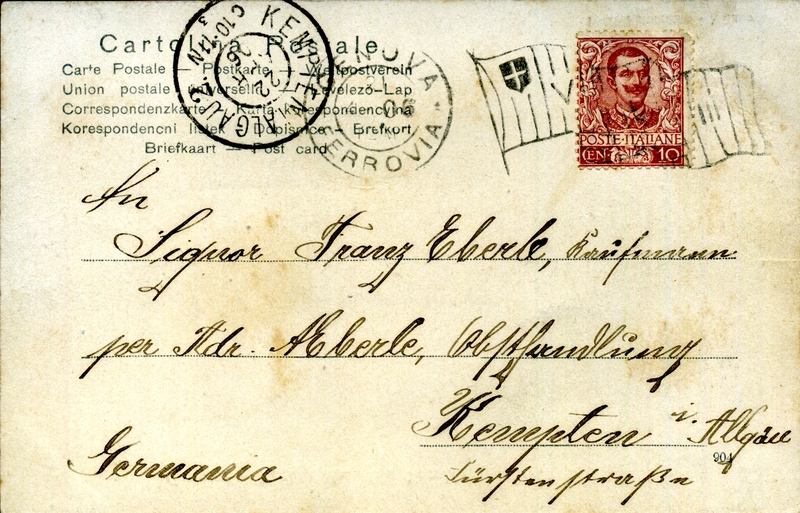 Cartolina Postale
Carte Postale — Postkarte — Weltpostverein
Union postale universelle — Levelező-Lap
Correspondenzkarte — Karta korespondencyjna
Korespondencni listek — Dopisnice — Brefkort
Briefkaart — Post card
KEMPTEN ALGÄU 2.
GENOVA
FERROVIA
POSTE·ITALIANE
CEN 10
An
Signor Franz Eberle, Kaufmann
per Adr. A Eberle, Obsthandlung
Kempten i. Allgäu
904
Germania Fürstenstraße